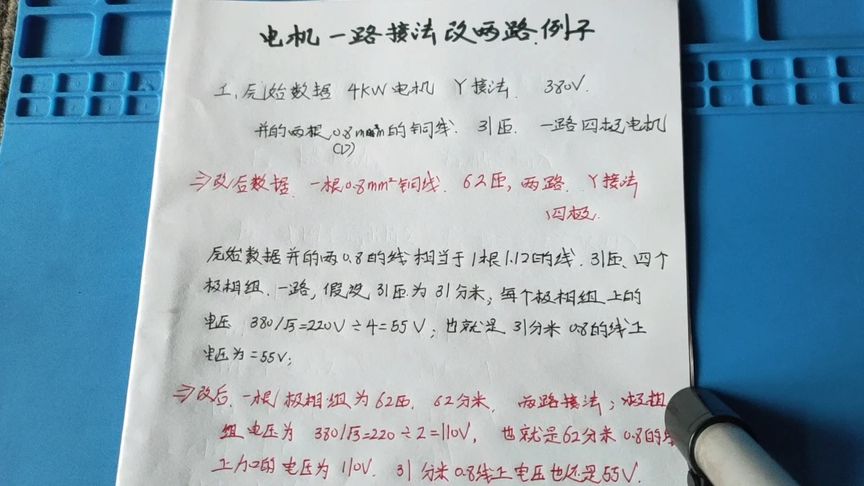 电机一路接法改两路.例子
1、原始数据 4KW电机 Y接法. 380V.
并的两根0.8mm的铜线. 31匝. 一路四极电机
(D)
⇒改后数据. 一根0.8mm²铜线. 62匝, 两路. Y接法
四极.
原始数据并的两0.8的线相当于1根1.12的线. 31匝、四个
极相组. 一路, 假设31匝为31分米, 每个极相组上的
电压 380/√3=220V÷4=55V; 也就是31分米0.8的线上
电压为=55V;
⇒改后. 一根极相组为62匝. 62分米. 两路接法; 极相
组电压为 380/√3=220÷2=110V, 也就是62分米0.8的
上加的电压为110V. 31分米0.8线上电压也还是55V.